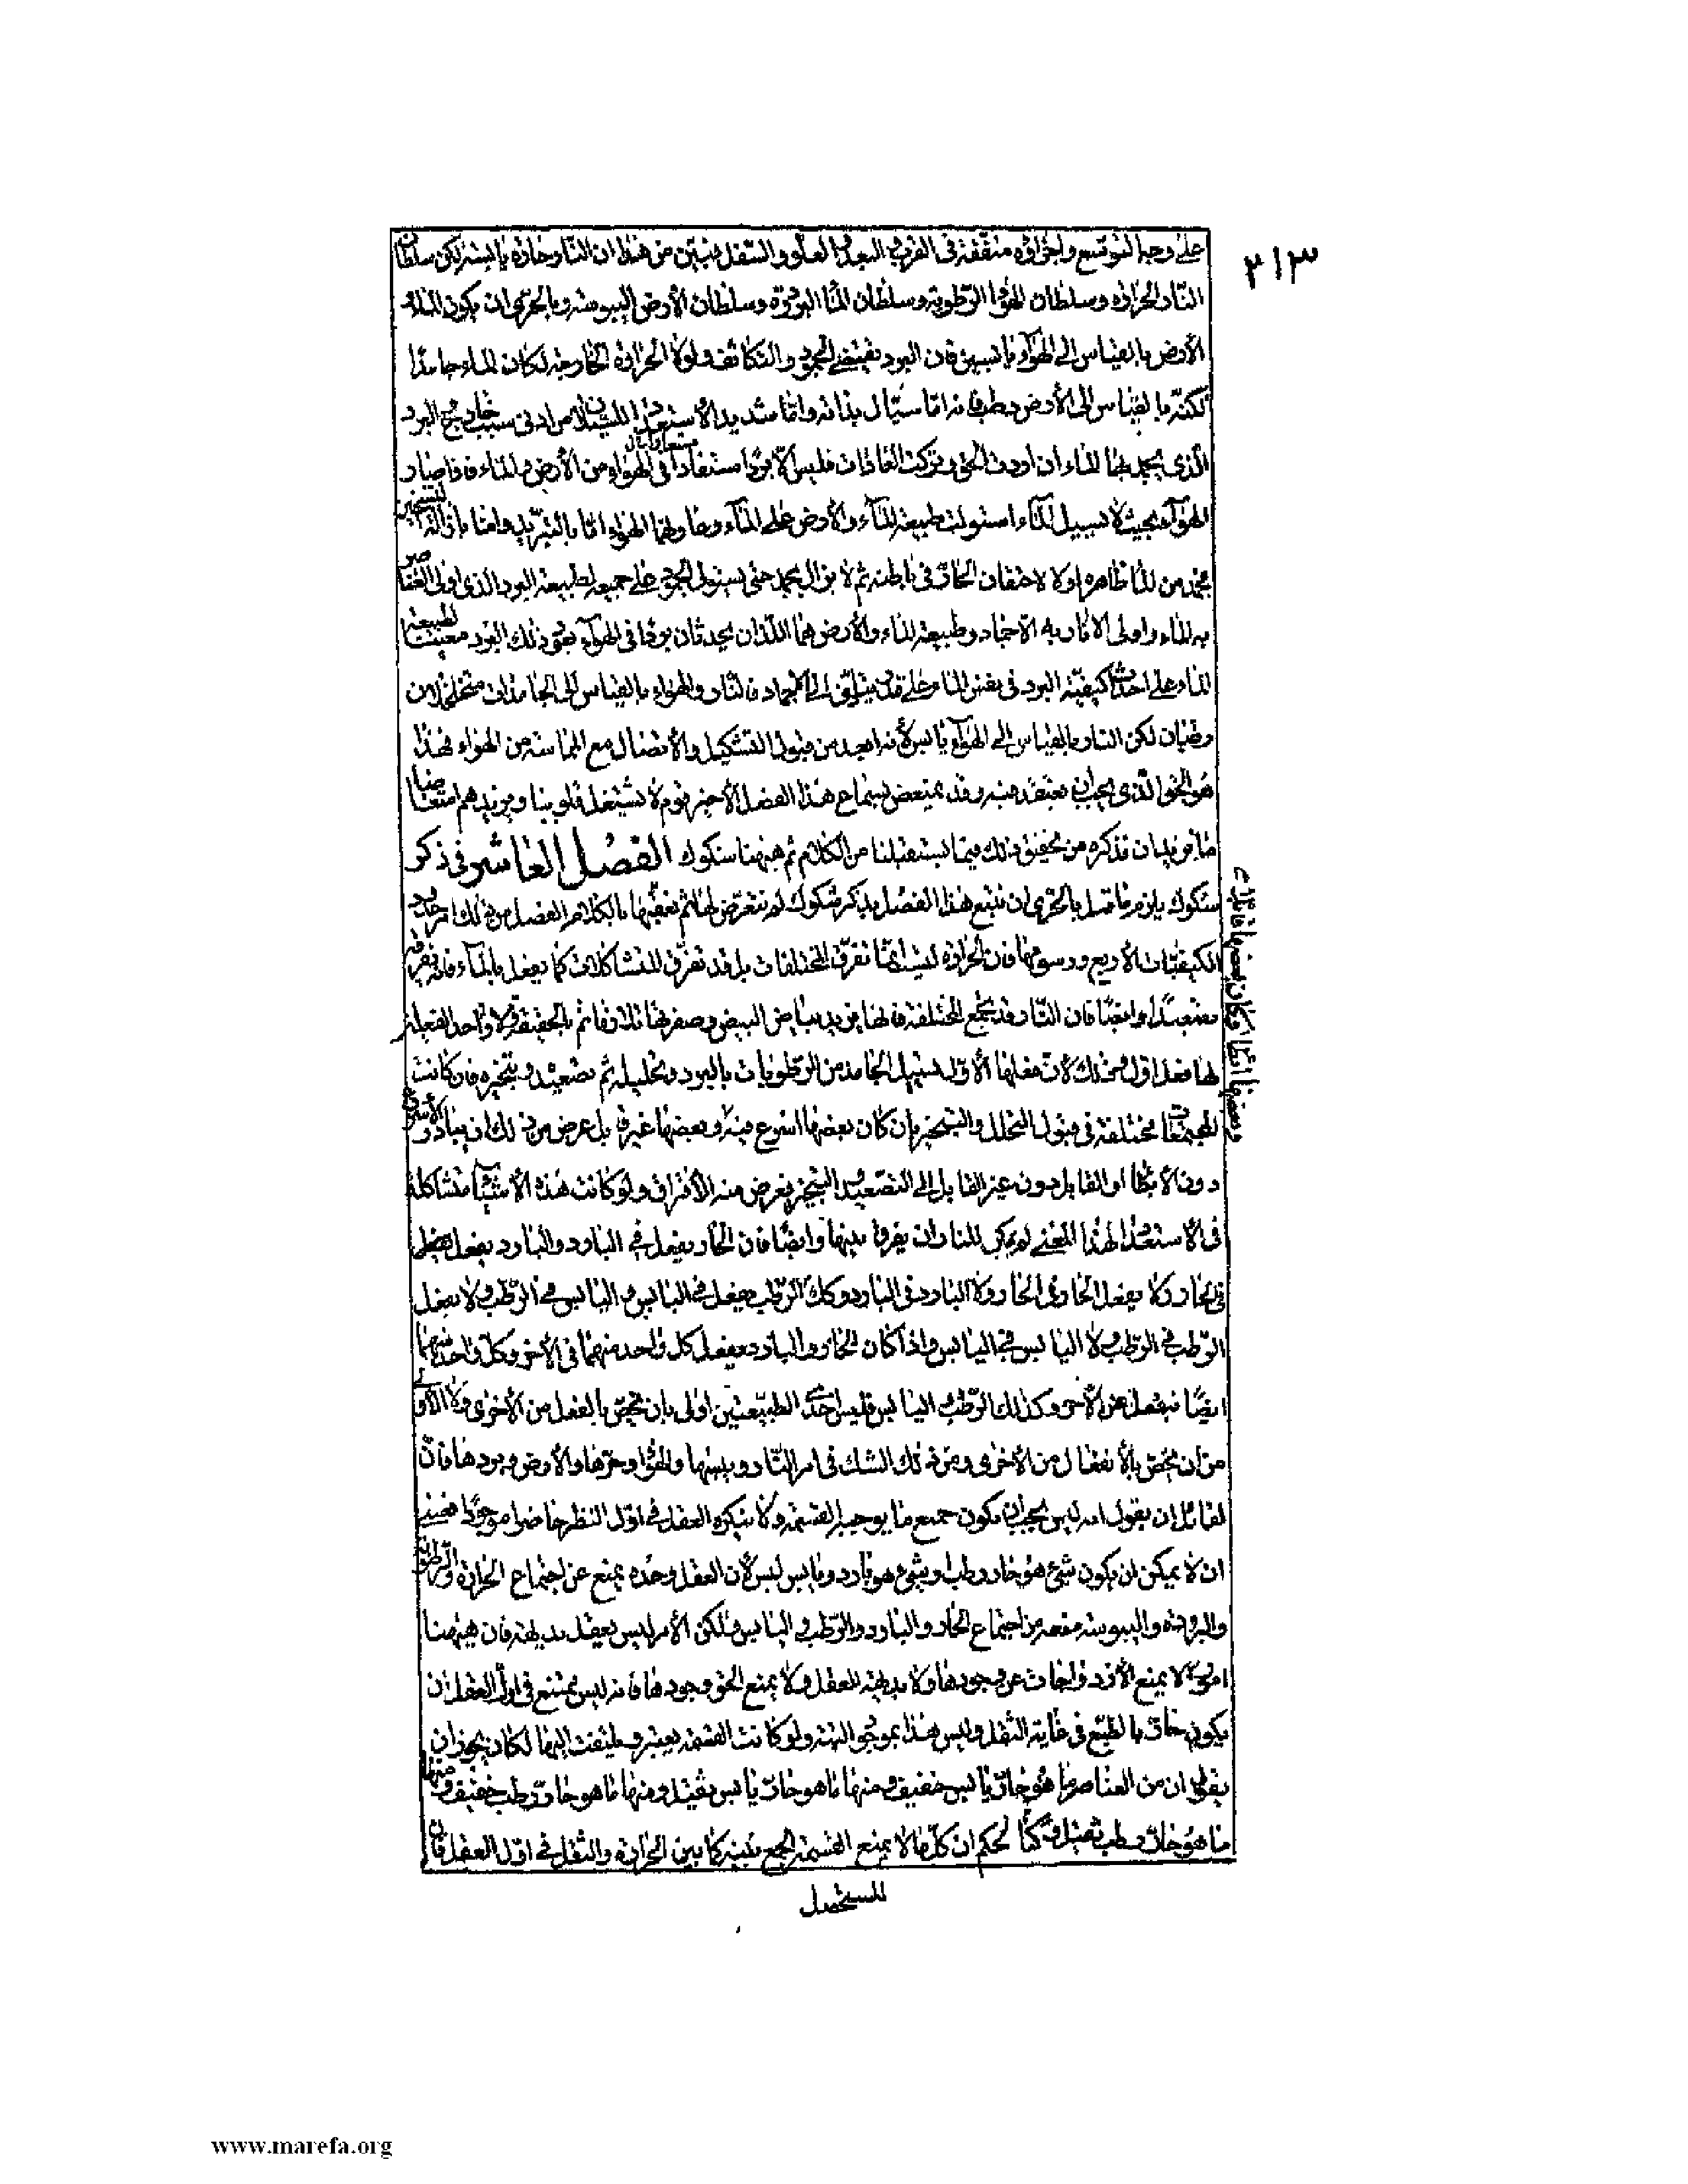 ٢١٣
على وجه التوسّع واجزاؤه متّفقة فى القرب و البعد و العلو و السّفل فبيّن من هذا ان النّار حارّة يابسة لكن سلطان
النّار الحرارة وسلطان الهواء الرّطوبة وسلطان الماء البرودة وسلطان الأرض اليبوسة وبالحرى ان يكون الماء و
الأرض بالقياس الى الهواء يابسين فان البرد يقتضى الجمود والتكاثف ولولا الحرارة الخارجية لكان الماء جامدا
لكنّه بالقياس الى الأرض رطب فانه امّا سيّال بذاته وامّا شديد الأستعداد للسيلان من ادنى سبب خارج البرد
الّذى يجمد به الماء ان اردت الحق وتركت العادات فليس الّا بردا مستفادا فى الهواء من الأرض والماء فاذا صار
الهواء بحيث لا يسيل الماء استولت طبيعة الماء والأرض على الماء وعاونها الهواء امّا بالتبريد وامّا بازالة التسخين
مجمد من الماء ظاهره اولا لاحتقان الحارّ فى باطنه ثم لا يزال يجمد حتى يستولى الجمود على جميعه لطبيعة البرد الذى اولى العناصر
به الماء واولى الآثار به الاجماد وطبيعة الماء والأرض هما اللّذان يحدثان بردا فى الهواء يعود ذلك البرد معينا لطبيعة
الماء على احداث كيفيّة البرد فى نفس الماء على قدر يتأدّى الى الاجماد فالنّار والهواء بالقياس الى الجامدات متخلخلان
رطبان لكن النار بالقياس الى الهواء يابس لأنه ابعد من قبول التشكيل والأتصال مع المماسة من الهواء فهذا
هو الحق الّذى يجب ان نعتقد فيه وقد يمتعض بسماع هذا الفصل الأخير قوم لا نشتغل قلوبنا ويزيدهم امتعاضا
ما نريد ان نذكره من تحقيق ذلك فيما يستقبلنا من الكلام ثم هيهنا شكوك الفصل العاشر فى ذكر
شكوك يلزم ما قيل بالحرى ان نتبع هذا الفصل بذكر شكوك لم نتعرّض لها ثم نعقّبها بالكلام الفصل من ذلك امر حدود
الكيفيّات الأربع ورسومها فان الحرارة ليست انّما تفرّق المختلفات بل قد تفرّق المتشاكلات كما يفعل بالماء فانه تفرقه
تصعيدا وايضا فان النّار قد تجمع المختلفة فانها تزيد بياض البيض وصفرتها تلازما ثم بالحقيقة ولا واحد الفعلين
لها فعل اوّل وذلك لأن فعلها الأوّل تسييل الجامد من الرّطوبات بالبرد وتحليله ثم تصعيده وتبخيره فان كانت
المجتمعات مختلفة فى قبول التحلل والتبخير بان كان بعضها اسرع فيه وبعضها غير قابل عرض من ذلك ان يبادر الأسرع
دون الأبطأ او القابل دون غير القابل الى التصعّد و التبخير فعرض منه الأفتراق ولو كانت هذه الأشياء متشاكلة
فى الأستعداد لهذا المعنى لم يمكن للنار ان يفرق بينها وايضا فان الحار يفعل فى البارد والبارد يفعل ايضا
فى الحار ولا يفعل الحار فى الحار ولا البارد فى البارد وكذلك الرّطب يفعل فى اليابس واليابس فى الرّطب ولا يفعل
الرّطب فى الرّطب ولا اليابس فى اليابس واذا كان الحار والبارد يفعل كل واحد منهما فى الأخر وكل واحد منهما
ايضا ينفعل عن الأخر وكذلك الرّطب واليابس فليس احدى الطبيعتين اولى بان يختصّ بالفعل من الأخرى ولا الأولى
من ان يختص بالأنفعال من الأخرى ومن ذلك الشك فى امر النّار ويبسها والهواء وحرّها والأرض وبردها فانّ
لقائل ان يقول انه ليس يجب ان يكون جميع ما يوجبه القسمة ولا ينكره العقل فى اوّل النظر حاصلا موجودا فعسى
ان لا يمكن ان يكون شىء هو حار ورطب وشىء هو بارد ويابس ليس لأن العقل وحده يمنع عن اجتماع الحرارة والرّطوبة
والبرودة واليبوسة منعه من اجتماع الحار والبارد والرّطب واليابس ولكن الأمر ليس يعقل بديهة فان هيهنا
امورا لا يمنع الأزدواجات عن وجودها ولا بديهة العقل ولا يمنع الحق وجودها فانه ليس يمتنع فى اول العقل ان
يكون حارّ بالطبع فى غاية الثقل وليس هذا بموجود البتة ولو كانت القسمة يعتبر ويلتفت اليها لكان يجوز ان
يقال ان من العناصر ما هو حارّ يابس خفيف ومنها ما هو حارّ يابس ثقيل ومنها ما هو حارّ رطب خفيف ومنها
ما هو حارّ رطب ثقيل ولو كنا نحكم ان كلّ ما لا يمنع القسمة الجمع بينه كما بين الحرارة والثقل فى اوّل العقل فان
للمستحصل
www.marefa.org